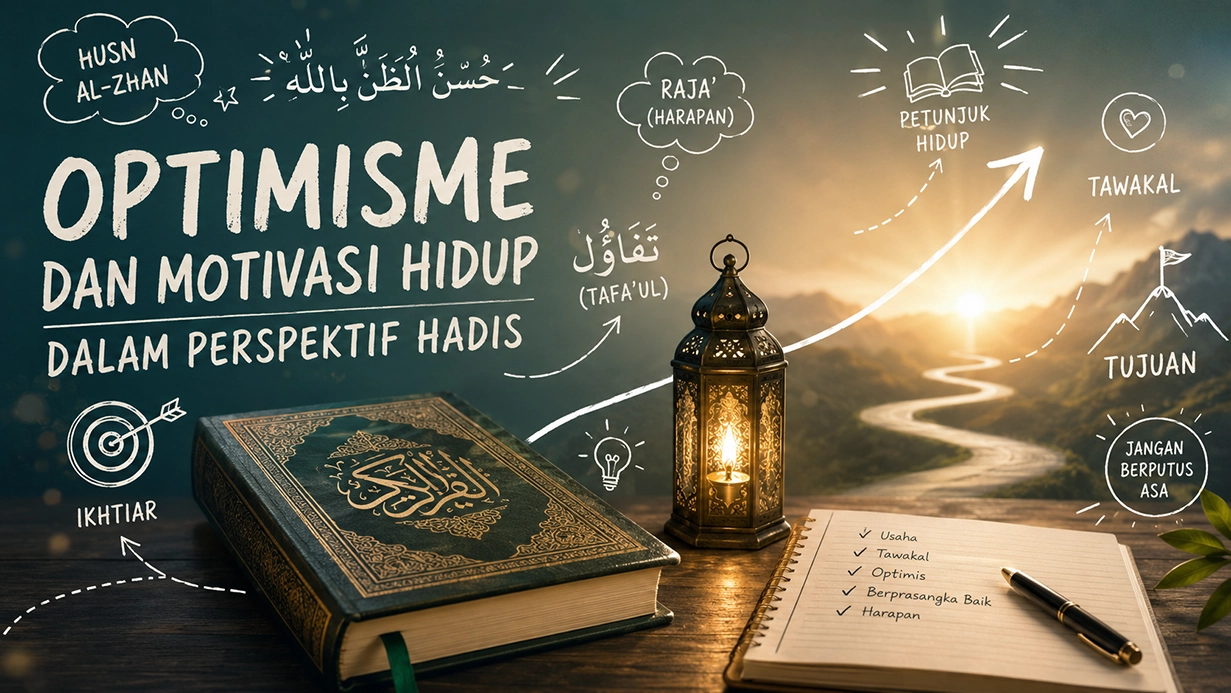 HUSN
AL-ZHAN
حُسْنُ الظَنِّ بِاللهِ
OPTIMISME
DAN MOTIVASI HIDUP
DALAM PERSPEKTIF HADIS
RAJA'
(HARAPAN)
تَفَاؤُل
(TAFA'UL)
PETUNJUK
HIDUP
TAWAKAL
TUJUAN
JANGAN
BERPUTUS
ASA
IKHTIAR
القرآن الكريم
✓ Usaha
✓ Tawakal
✓ Optimis
✓ Berprasangka Baik
✓ Harapan